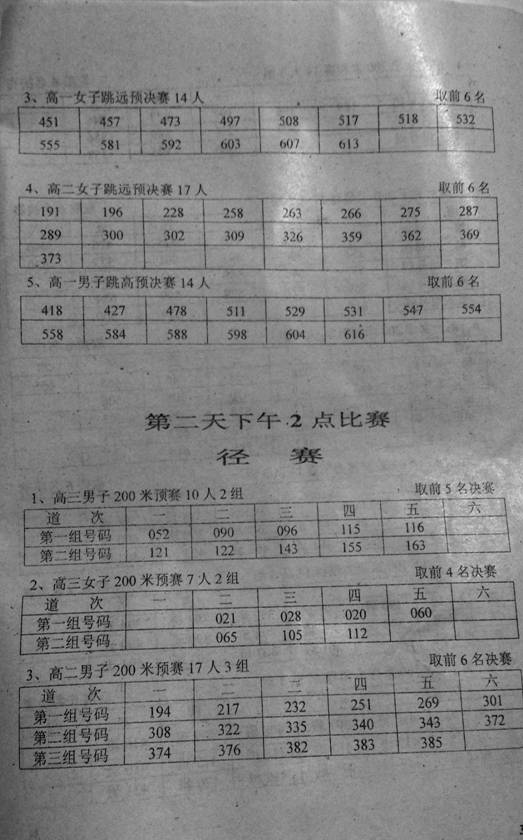 3、高一女子跳远预决赛 14 人 取前 6 名
451 457 473 497 508 517 518 532
555 581 592 603 607 613
4、高二女子跳远预决赛 17 人 取前 6 名
191 196 228 258 263 266 275 287
289 300 302 309 326 359 362 369
373
5、高一男子跳高预决赛 14 人 取前 6 名
418 427 478 511 529 531 547 554
558 584 588 598 604 616
第二天下午 2 点比赛
径 赛
1、高三男子 200 米预赛 10 人 2 组 取前 5 名决赛
道 次 一 二 三 四 五 六
第一组号码 052 090 096 115 116
第二组号码 121 122 143 155 163
2、高三女子 200 米预赛 7 人 2 组 取前 4 名决赛
道 次 一 二 三 四 五 六
第一组号码 021 028 020 060
第二组号码 065 105 112
3、高二男子 200 米预赛 17 人 3 组 取前 6 名决赛
道 次 一 二 三 四 五 六
第一组号码 194 217 232 251 269 301
第二组号码 308 322 335 340 343 372
第三组号码 374 376 382 383 385